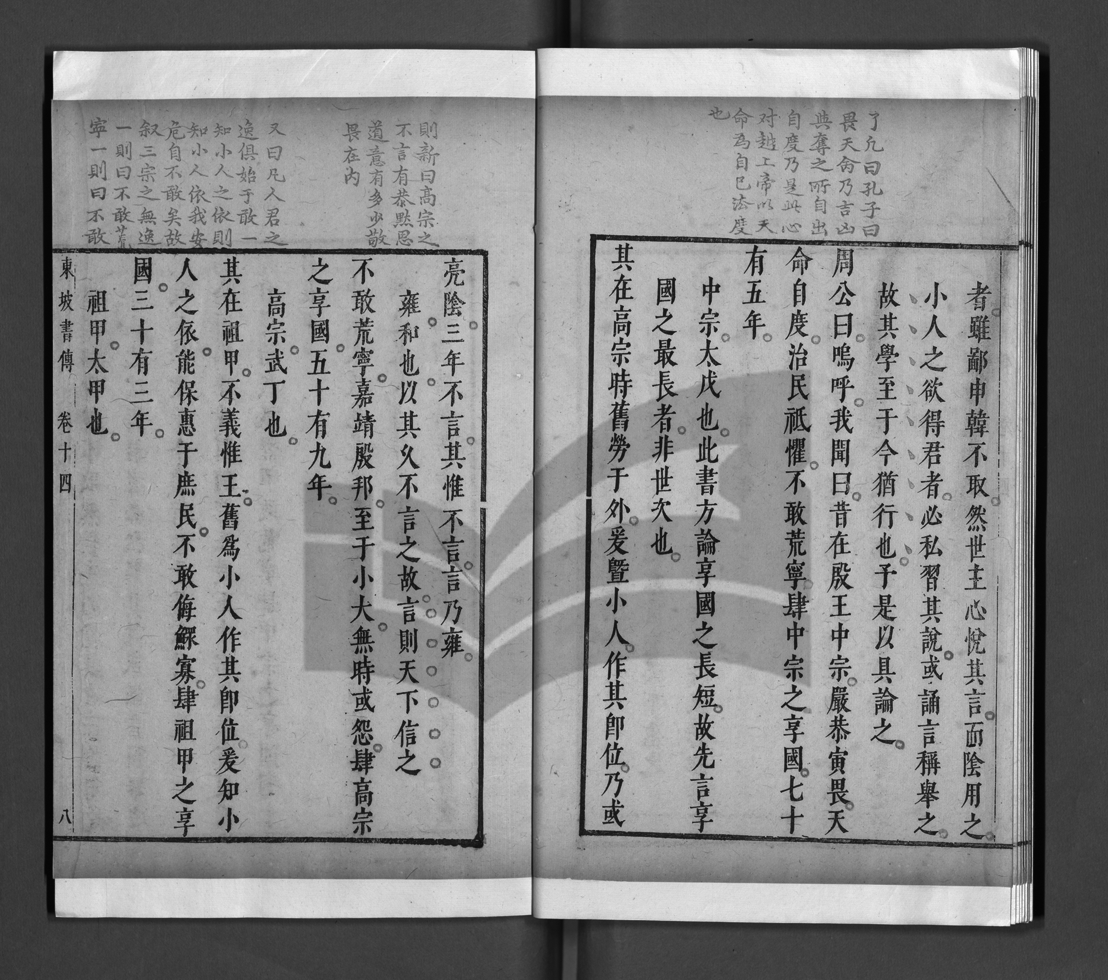 了凡曰孔子曰
畏天命乃言凶
與奪之所自出
自度乃是此心
对越上帝以天
命為自己法度
也
者雖鄙申韓不取然世主心悅其言而陰用之
小人之欲得君者必私習其說或誦言稱舉之
故其學至于今猶行也予是以具論之
周公曰嗚呼我聞曰昔在殷王中宗嚴恭寅畏天
命自度治民祗懼不敢荒寧肆中宗之享國七十
有五年
中宗太戊也此書方論享國之長短故先言享
國之最長者非世次也
其在高宗時舊勞于外爰曁小人作其卽位乃或
則新曰高宗之
不言有恭默思
道意有多少敬
畏在內
又曰凡人君之
逸俱始于敢一
知小人之依則
知小人依我安
危自不敢矣故
叙三宗之無逸
一則曰不敢荒
寧一則曰不敢
亮陰三年不言其惟不言言乃雍
雍和也以其久不言之故言則天下信之
不敢荒寧嘉靖殷邦至于小大無時或怨肆高宗
之享國五十有九年
高宗武丁也
其在祖甲不義惟王舊爲小人作其卽位爰知小
人之依能保惠于庶民不敢侮鰥寡肆祖甲之享
國三十有三年
祖甲太甲也
東坡書傳 卷十四 八